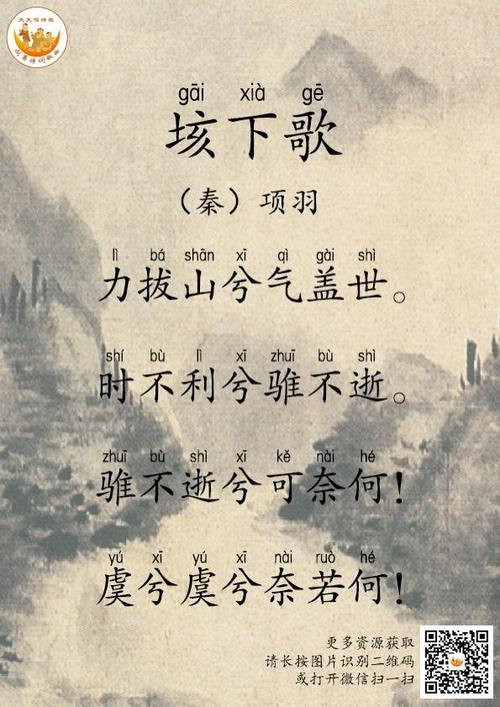 天天唱诗班
gāi xià gē
垓下歌
（秦）项羽
lì bá shān xī qì gài shì
力拔山兮气盖世。
shí bù lì xī zhuī bù shì
时不利兮骓不逝。
zhuī bù shì xī kě nài hé
骓不逝兮可奈何！
yú xī yú xī nài ruò hé
虞兮虞兮奈若何！
更多资源获取
请长按图片识别二维码
或打开微信扫一扫